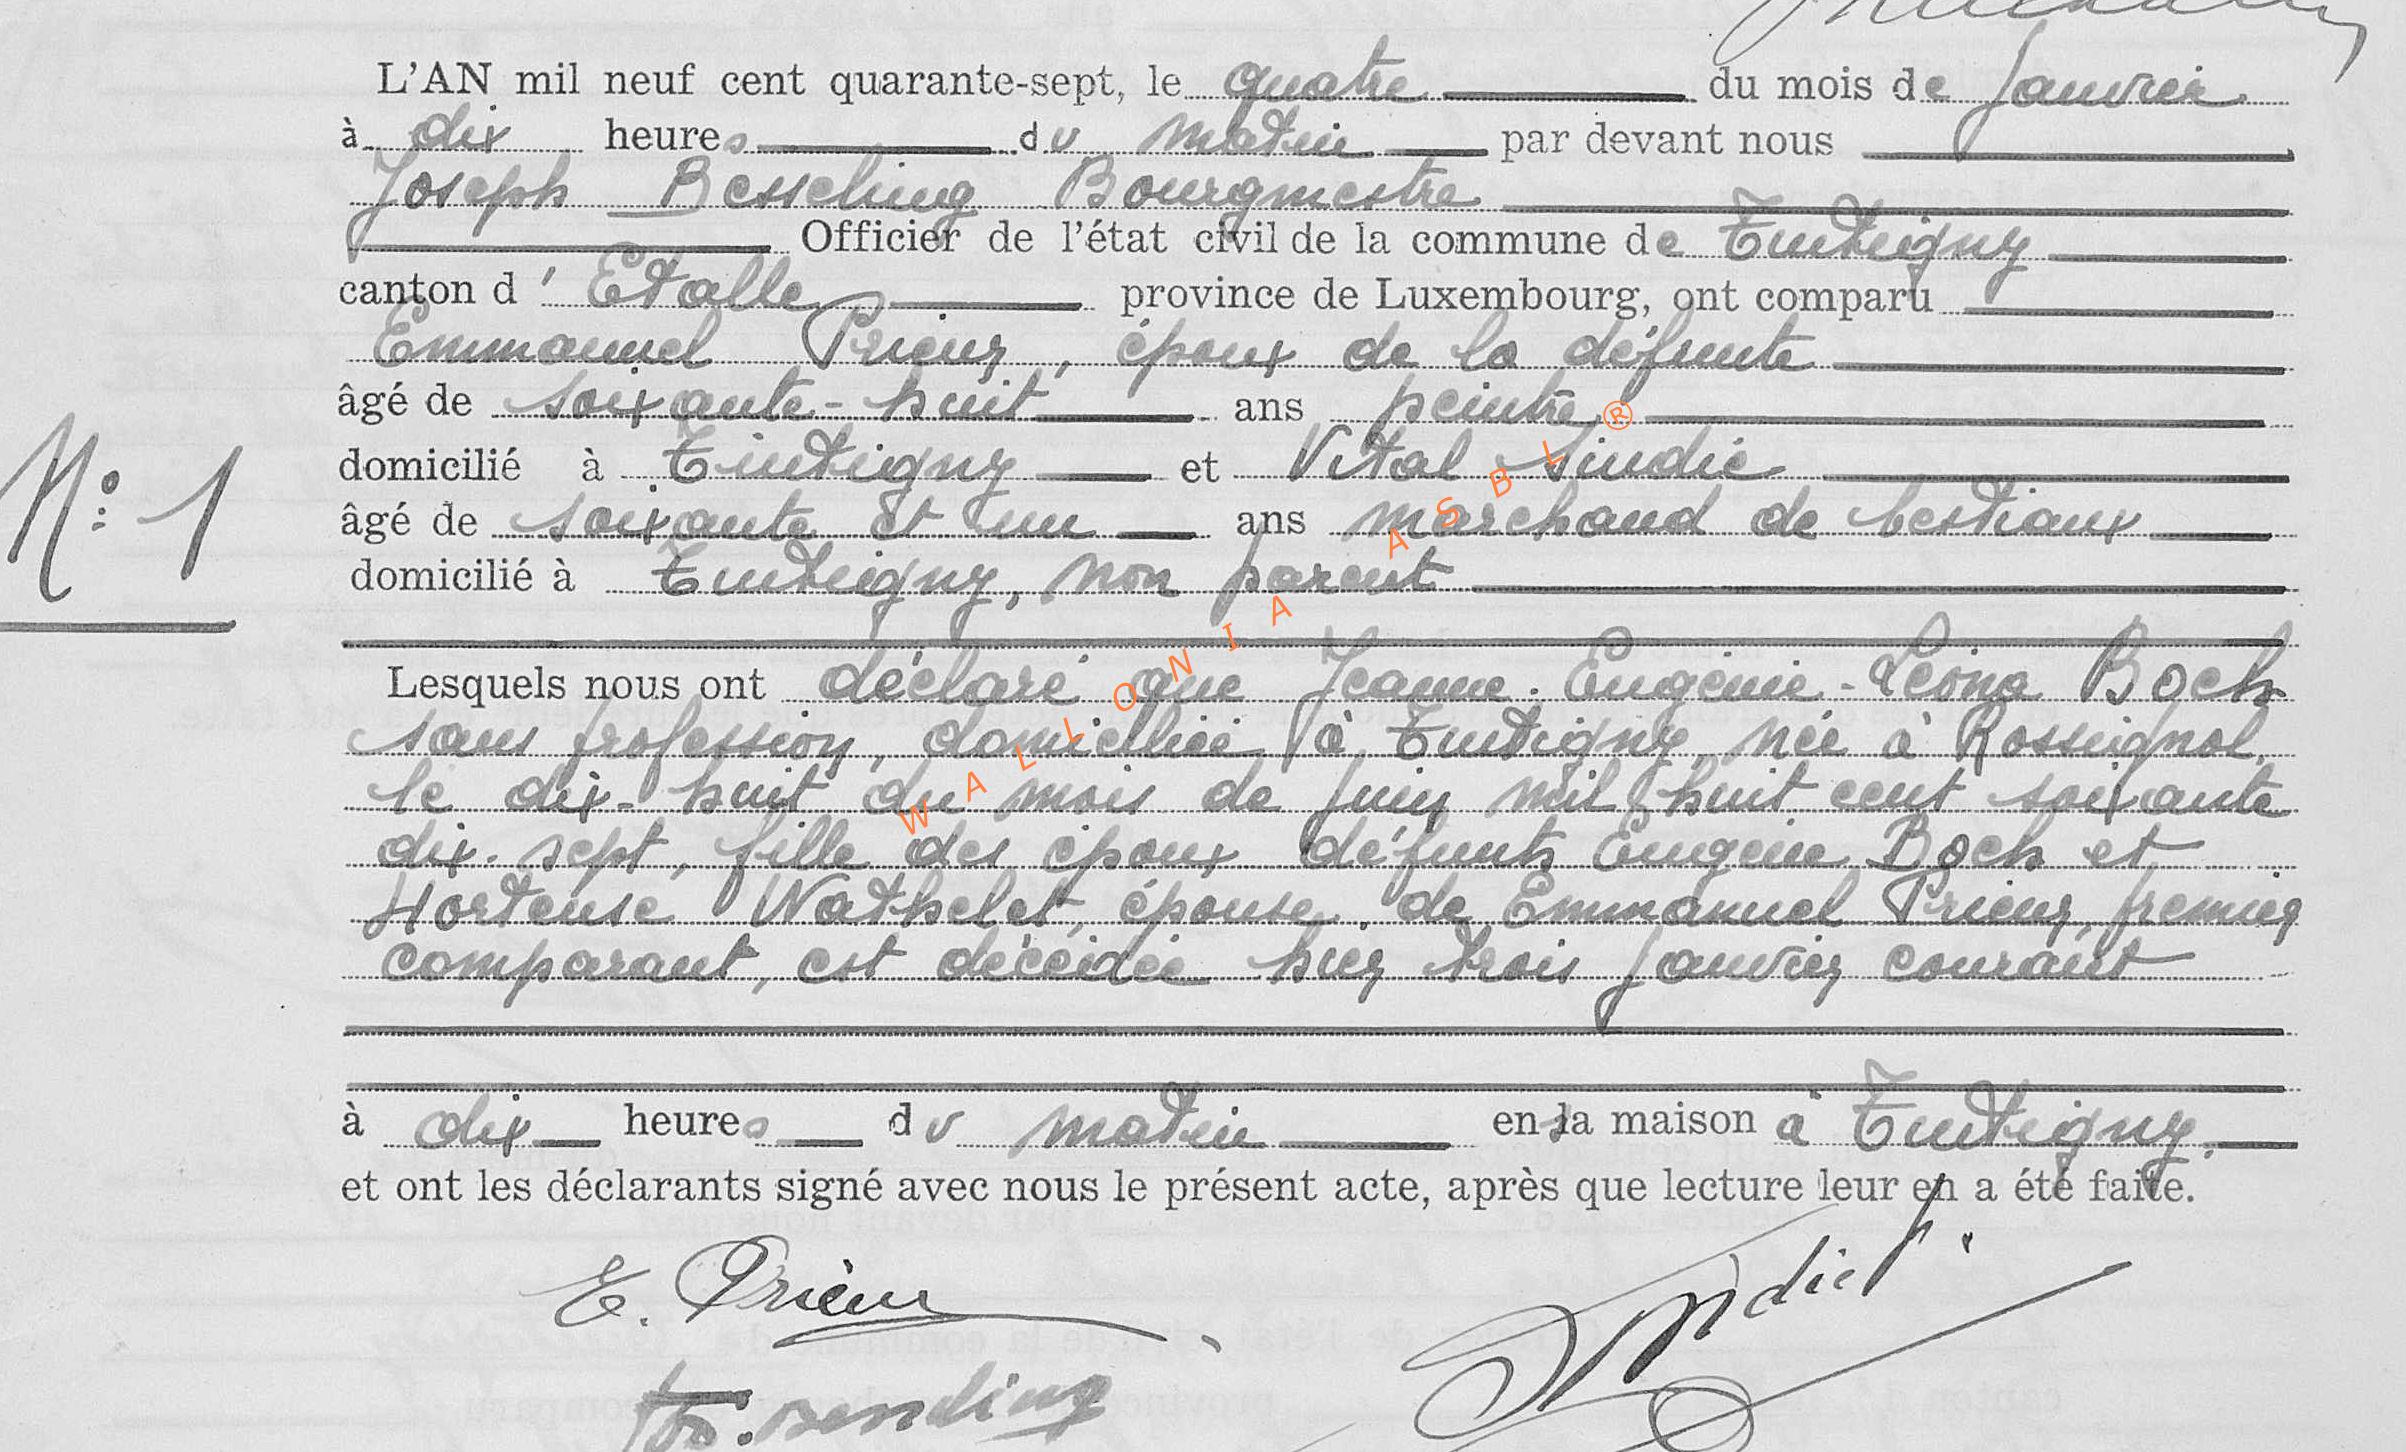 L'AN mil neuf cent quarante-sept, le quatre du mois de Janvier
à dix heures du matin par devant nous
Joseph Besseling Bourgmestre
Officier de l'état civil de la commune de Tintigny
canton d' Etalle province de Luxembourg, ont comparu
Emmanuel Prieur, époux de la défunte
âgé de soixante-huit ans peintre
domicilié à Tintigny et Vital Sindic
âgé de soixante et un ans marchand de bestiaux
N° 1
domicilié à Tintigny, non parent
Lesquels nous ont déclaré que Jeanne-Eugénie-Léona Bock
sans profession, domiciliée à Tintigny, née à Rossignol,
le dix-huit du mois de juin mil huit cent soixante
dix-sept, fille des époux défunts Eugène Bock et
Hortense Wathelet, épouse de Emmanuel Prieur, premier
comparant, est décédée hier trois janvier courant
à dix heures du matin en sa maison à Tintigny.
et ont les déclarants signé avec nous le présent acte, après que lecture leur en a été faite.
E. Prieur
Sindic V.
WALLONIA ASBL ®